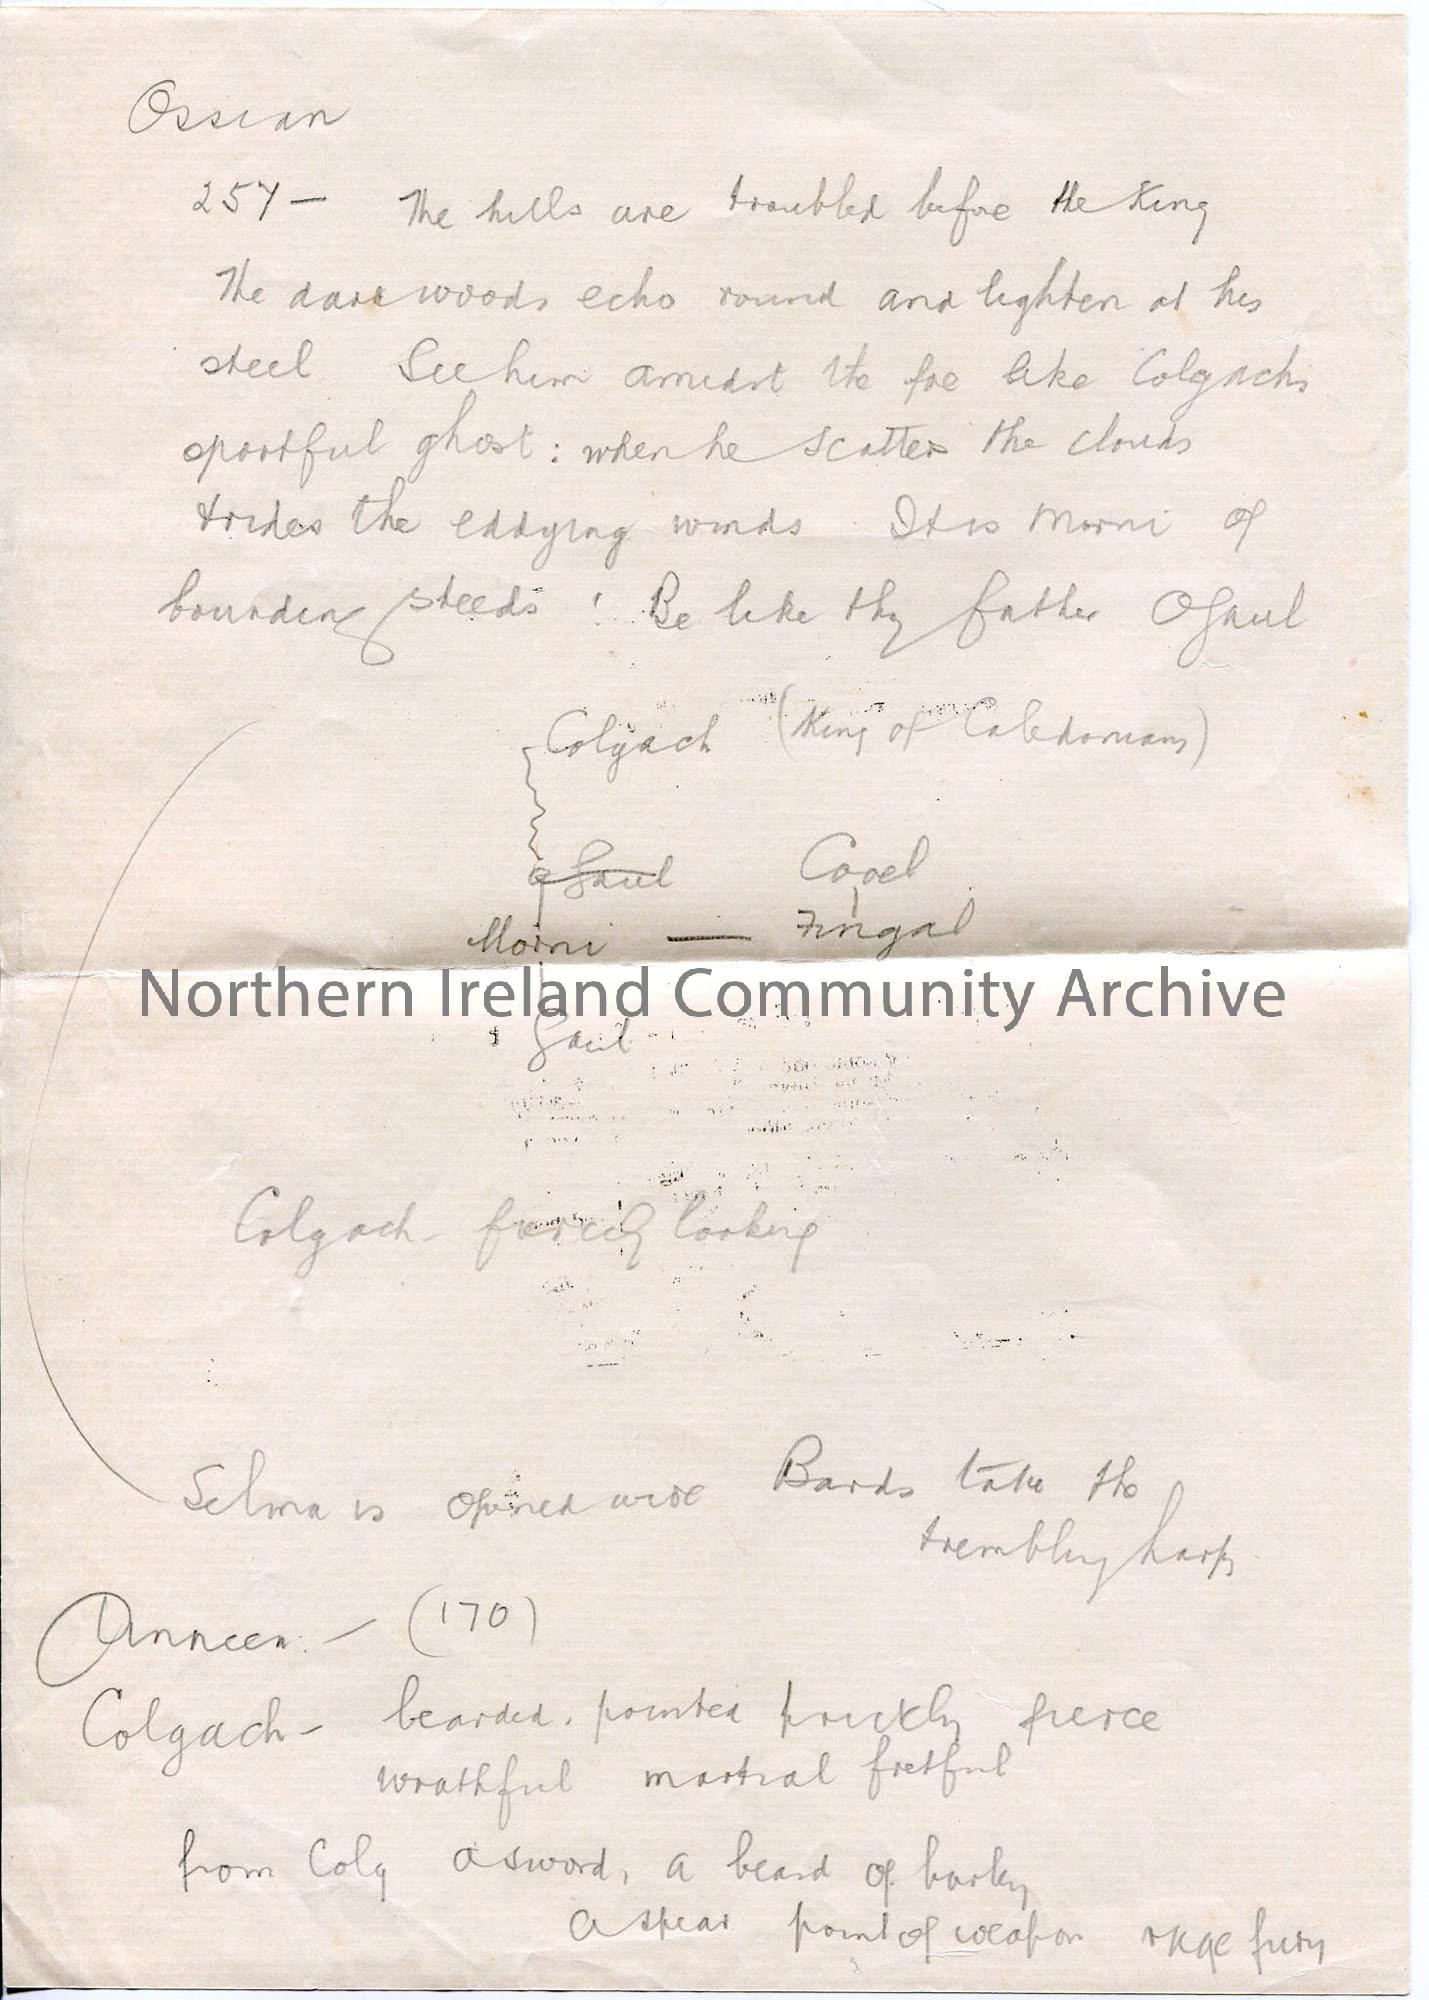 Ossian
257 — The hills are troubled before the King
The dark woods echo round and lighten at his
steel See him amidst the foe like Colgachs
sportful ghost: when he scatters the clouds
& rides the eddying winds It is Morni of
bounding steeds! Be like thy father O Gaul
Colgach (King of Caledonians)
Gaul
Morni — Fingal
Northern Ireland Community Archive
Gaul
Colgach - fiercely looking
Selma is opened wide Bards take the
trembling harps
(170)
Colgach - bearded, pointed prickly fierce
wrathful martial fretful
from Colg a sword, a beard of barley
a spear point of weapon rage fury